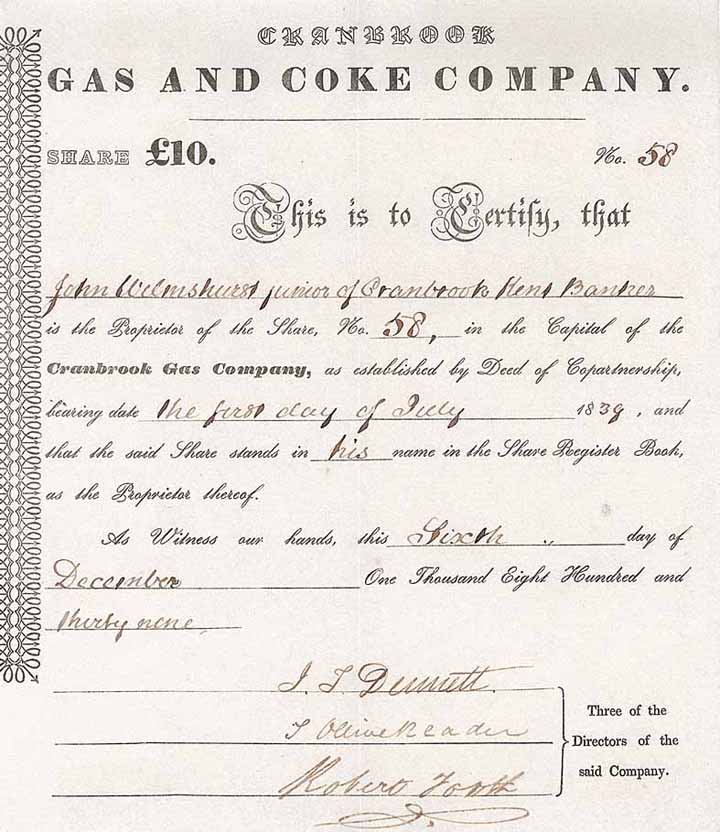 CRANBROOK
GAS AND COKE COMPANY.
SHARE £10. No. 58
This is to Certify, that
John Wilmshurst junior of Cranbrook Kent Banker
is the Proprietor of the Share, No. 58, in the Capital of the
Cranbrook Gas Company, as established by Deed of Copartnership,
bearing date the first day of July 1839, and
that the said Share stands in his name in the Share Register Book,
as the Proprietor thereof.
As Witness our hands, this Sixth day of
December One Thousand Eight Hundred and
thirty nine
Three of the
Directors of the
said Company.
J. T. Dennett
T Ollive Reader
Robert Tooth